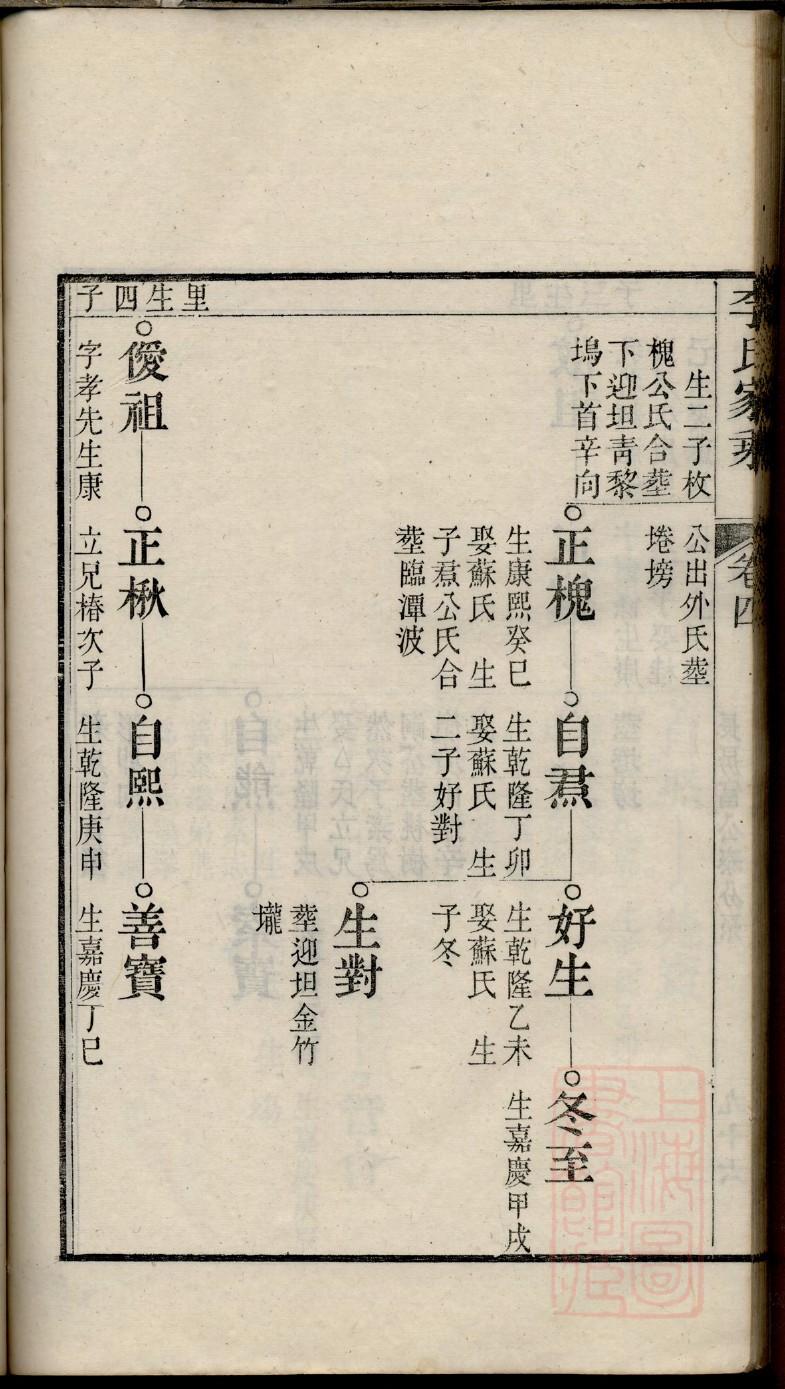 李氏家乘
卷四
生二子枚
槐公氏合塟
下迎坦靑黎
塢下首辛向
公出外氏塟
埢塝
正槐
生康熙癸巳
娶蘇氏 生
子焄公氏合
塟臨潭波
自焄
生乾隆丁卯
娶蘇氏 生
二子好對
好生
生乾隆乙未
娶蘇氏 生
子冬
冬至
生嘉慶甲戌
生對
塟迎坦金竹
壠
里生四子
優祖
字孝先生康
正楸
立兄椿次子
自熙
生乾隆庚申
善寶
生嘉慶丁巳
上海圖書館藏